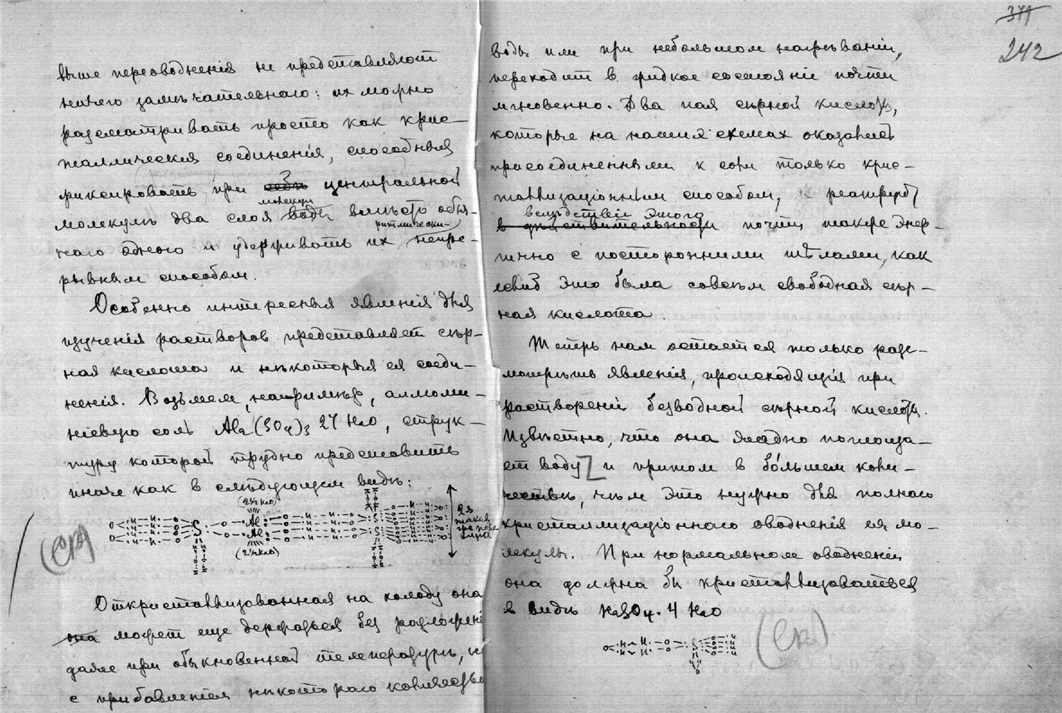 выше переоводненія не представляютъ
ничего замѣчательнаго: ихъ можно
разсматривать просто какъ крис-
таллическія соединенія, способныя
фиксировать при центральной
молекулѣ два слоя воды вмѣсто обыч-
наго одного и удерживать ихъ непре-
рывнымъ способомъ.
Особенно интересныя явленія для
изученія растворовъ представляетъ сѣр-
ная кислота и нѣкоторыя ея соеди-
ненія. Возьмемъ, напримѣръ, аллюми-
ніевую соль Al₂(SO₄)₃ 27 H₂O, струк-
туру которой трудно представить
иначе какъ въ слѣдующемъ видѣ:
Откристаллизованная на холоду она
можетъ еще держаться безъ разложенія
даже при обыкновенной температурѣ, но
с прибавленіемъ нѣкотораго количества
371
242
воды или при небольшомъ нагрѣваніи,
переходитъ в жидкое состояніе почти
мгновенно. Два пая сѣрной кислоты,
которые на нашихъ схемахъ оказались
присоединенными к соли только крис-
таллизаціоннымъ способомъ, реагируютъ
вслѣдствіе этого
почти также энер-
гично с посторонними тѣлами, какъ
если бъ это была совсѣмъ свободная сѣр-
ная кислота.
Теперь намъ остается только разс-
мотрѣть явленія, происходящія при
раствореніи безводной сѣрной кислоты.
Извѣстно, что она жадно поглоща-
етъ воду и притомъ в бо́льшемъ коли-
чествѣ, чѣмъ это нужно для полнаго
кристаллизаціоннаго оводненія ея мо-
лекулы. При нормальномъ оводненіи
она должна бы кристаллизоваться
в видѣ H₂SO₄·4 H₂O